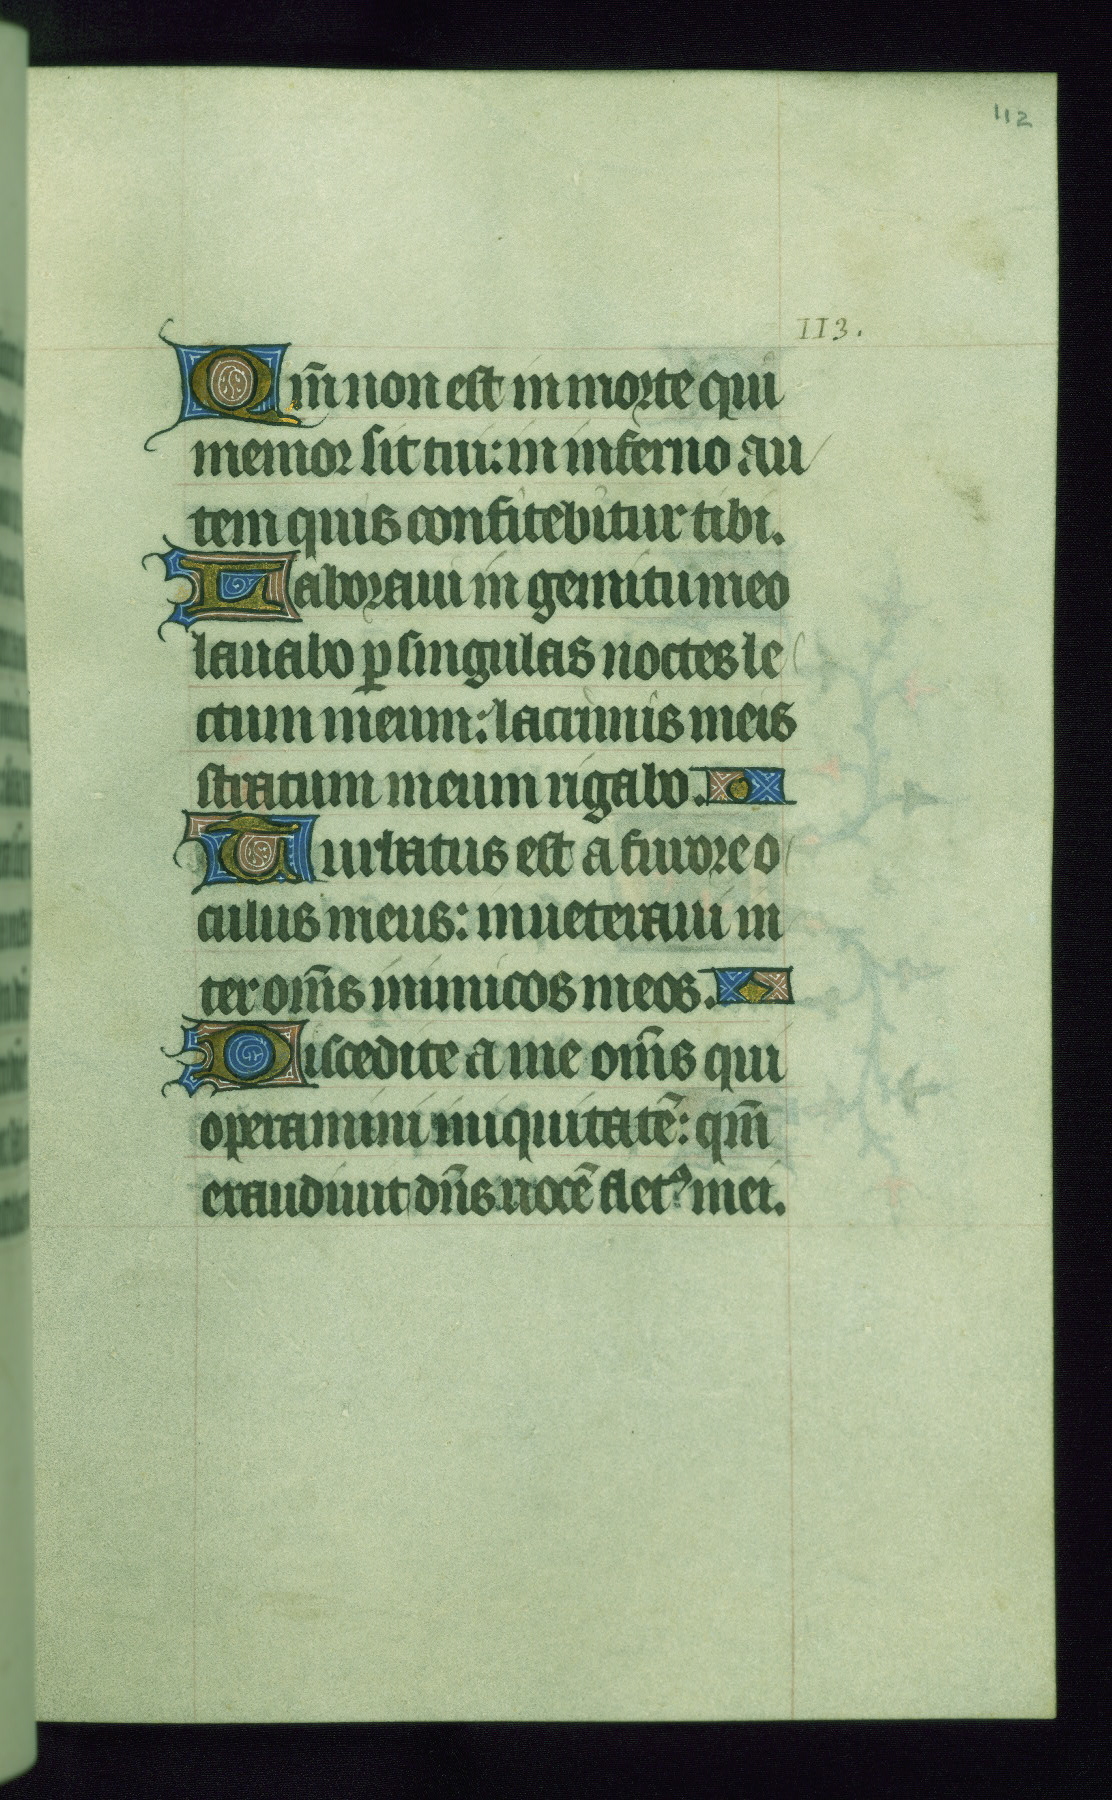 112
113.
Qm̄ non est in morte qui
memor sit tui: in inferno au
tem quis confitebitur tibi.
Laboraui in gemitu meo
lauabo ꝑ singulas noctes le
ctum meum: lacrimis meis
stratum meum rigabo.
Turbatus est a furore o
culus meus: inueteraui in
ter om̄s inimicos meos.
Discedite a me om̄s qui
operamini iniquitatē: qm̄
exaudiuit dn̄s uocē fletꝰ mei.